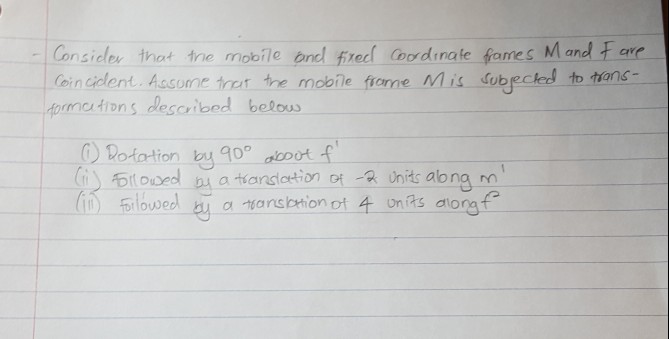 - Consider that the mobile and fixed Coordinate frames M and F are
Coincident. Assume that the mobile frame M is subjected to trans-
formations described below
(i) Rotation by 90° about f'
(ii) Followed by a translation of -2 units along m'
(iii) Followed by a translation of 4 units along f²